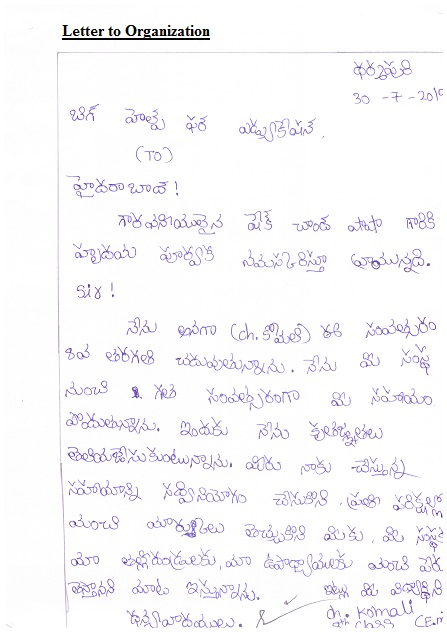 Letter to Organization
ధర్మపురి
30-7-2019
బిగ్ హెల్ప్ ఫర్ ఎడ్యుకేషన్.
(TO)
హైదరాబాద్!
గౌరవనీయులైన షేక్ చాంద్ పాషా గారికి
హృదయ పూర్వక నమస్కరిస్తూ వ్రాయునది.
Sir!
నేను అనగా (ch. కోమలి) ఈ సంవత్సరం
8వ తరగతి చదువుతున్నాను. నేను మీ సంస్థ
నుంచి గత సంవత్సరంగా మీ సహాయం
పొందుతున్నాను. ఇందుకు నేను కృతజ్ఞతలు
తెలియజేసుకుంటున్నాను. మీరు నాకు చేస్తున్న
సహాయాన్ని సద్వినియోగం చేసుకొని, ప్రతి
మంచి మార్కులు తెచ్చుకొని మీకు, మీ సంస్థ
మా తల్లిదండ్రులకు, మా ఉపాధ్యాయులకు మంచి పేరు
తెస్తానని మాట ఇస్తున్నాను. ఇట్లు మీ విద్యార్థిని
ధన్యవాదములు. ch. Komali